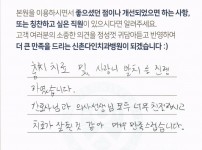 본원을 이용하시면서 좋으셨던 점이나 개선되었으면 하는 사항,
또는 칭찬하고 싶은 직원이 있으시다면 알려주세요.
고객 여러분의 소중한 의견을 정성껏 귀담아듣고 반영하여
더 큰 만족을 드리는 신촌다인치과병원이 되겠습니다 :)
충치 치료 및 사랑니 발치 등 진료
받았습니다.
간호사님과 의사선생님 모두 너무 친절하시고
치료가 잘 된 것 같아 매우 만족스럽습니다.